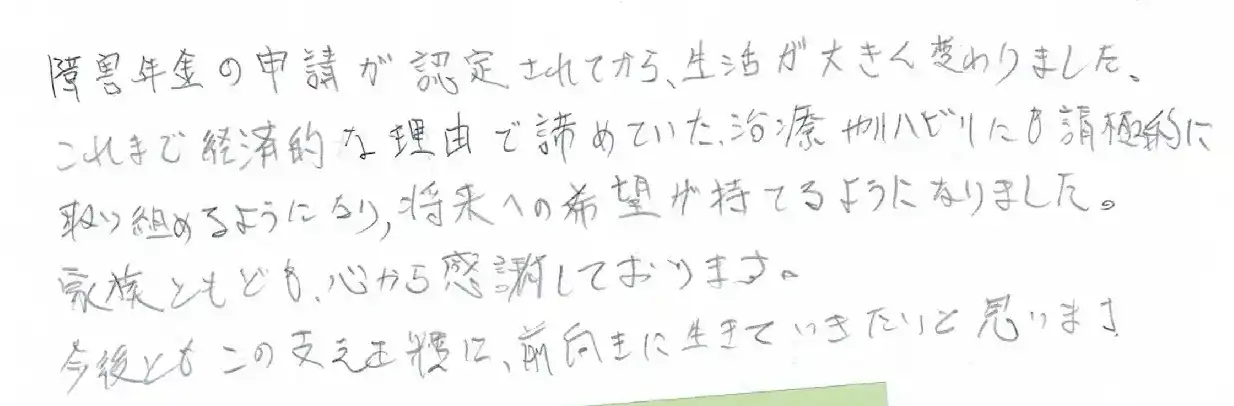 障害年金の申請が認定されてから、生活が大きく変わりました、
これまで経済的な理由で諦めていた、治療やリハビリにも積極的に
取り組めるようになり、将来への希望が持てるようになりました。
家族ともども、心から感謝しております。
今後ともこの支えを糧に、前向きに生きていきたいと思います